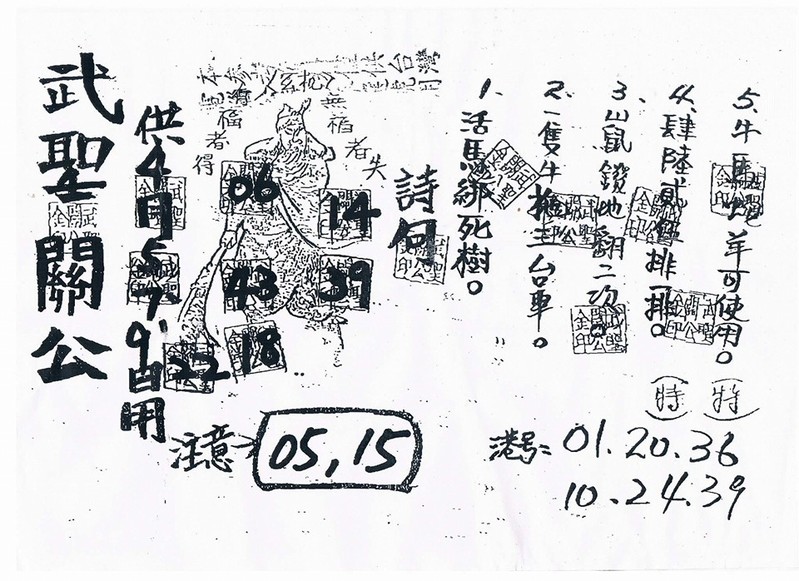 武聖關公
供4月5.7.9日用
無福者失
福者得
06
14
43
39
22
18
詩句
1.活馬綁死樹。
2.一隻牛拖三台車。
3.山鼠鑽地翻二次。
4.肆陸貳 排一排。
5.牛 羊可使用。
(特) (特)
注意→ 05,15
港号: 01.20.36
10.24.39
武聖關公金印